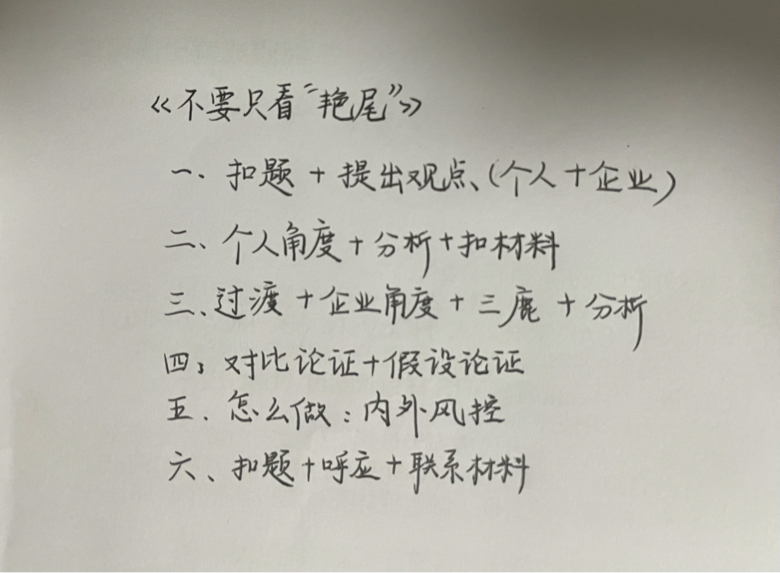 《不要只看“艳尾”》
一、扣题+提出观点、(个人+企业)
二、个人角度+分析+扣材料
三、过渡+企业角度+三鹿+分析
四、对比论证+假设论证
五、怎么做：内外风控
六、扣题+呼应+联系材料